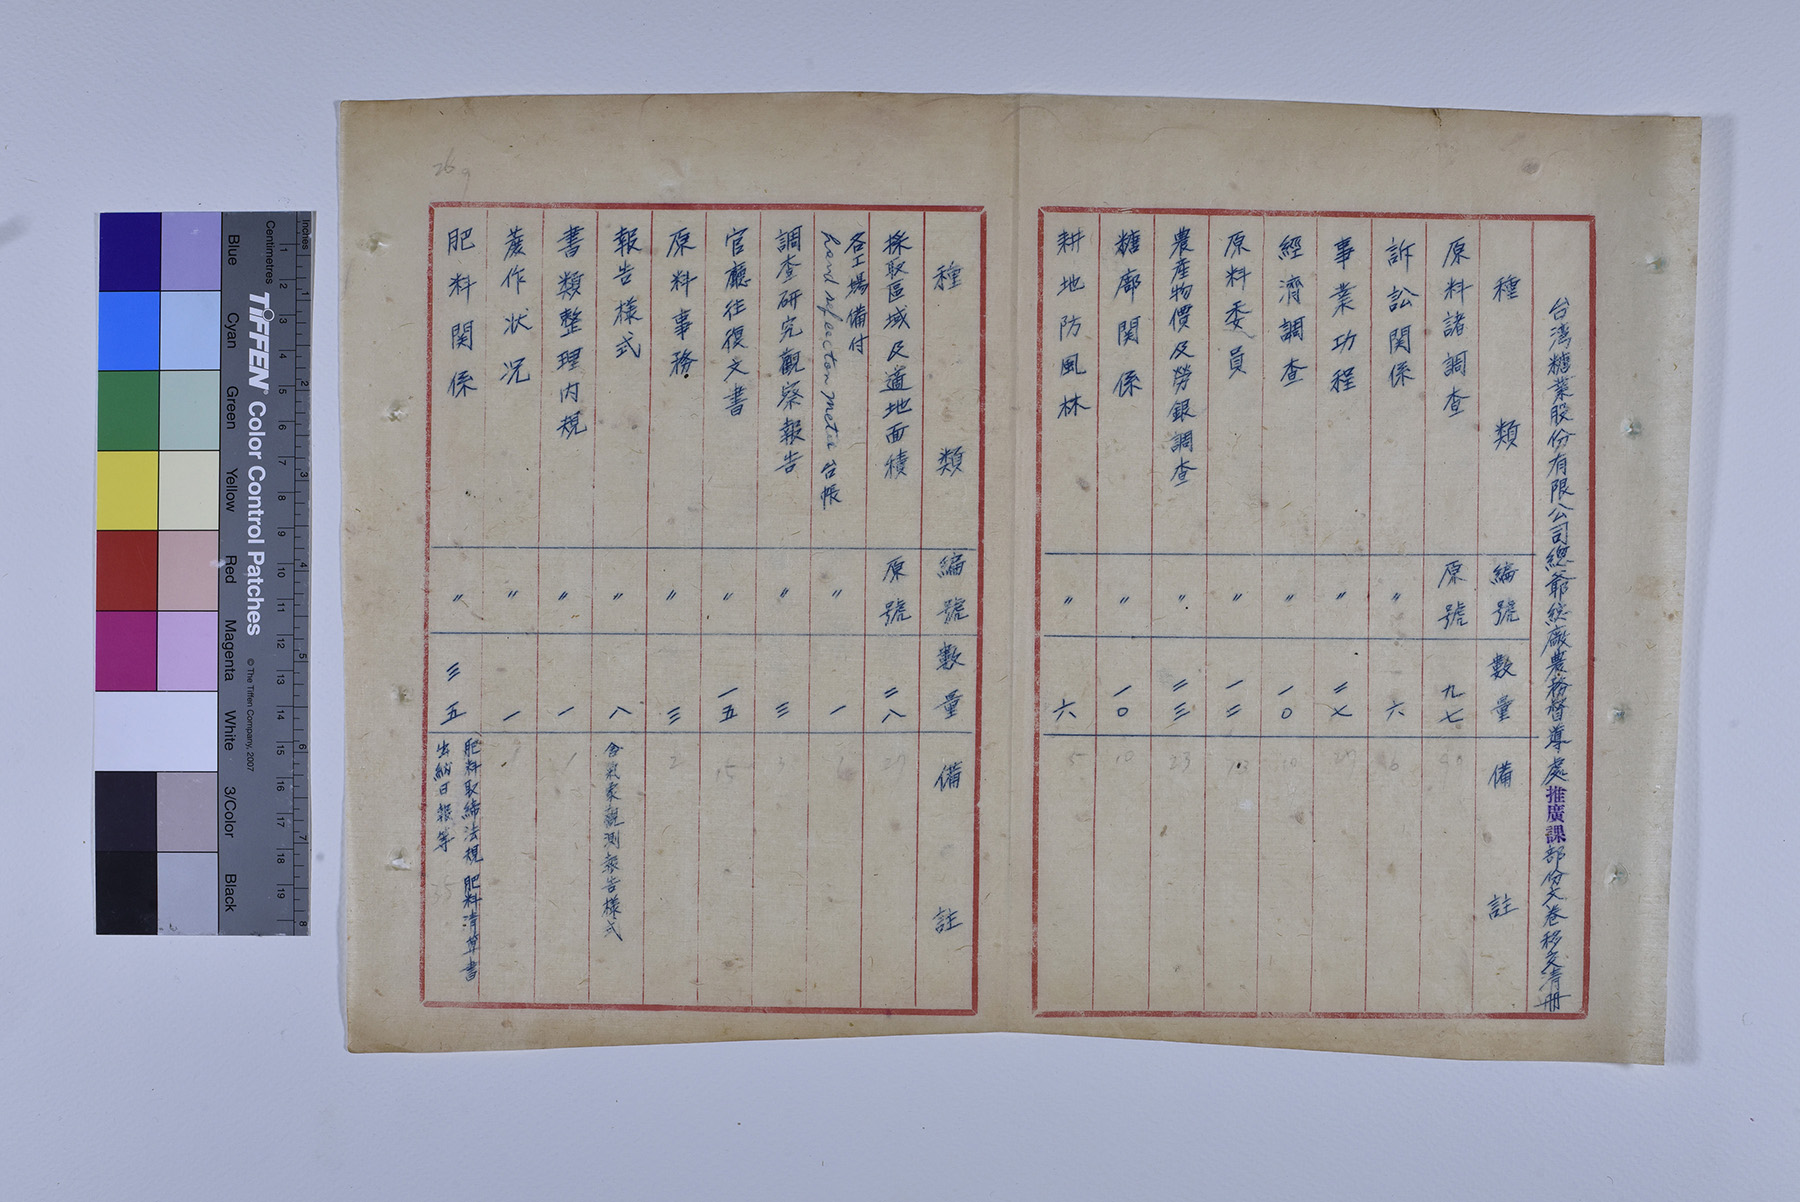 台湾糖業股份有限公司總爺総廠農務督導處推廣課部份文卷移交清册
種類 編號 數量 備註
原料諸調查 原號 九七 90
訴訟関係 〃 六 6
事業功程 〃 二七 27
經濟調查 〃 一〇 10
原料委員 〃 一二 12
農産物價及勞銀調查 〃 二三 23
糖廍関係 〃 一〇 10
耕地防風林 〃 六 5
種類 編號 數量 備註
採取區域及適地面積 原號 二八 27
各工場備付
hand refrecton meter 台帳 〃 一 1
調查研究觀察報告 〃 三 3
官廳往復文書 〃 一五 15
原料事務 〃 三 2
報告樣式 〃 八 含氣象観測報告樣式
書類整理内規 〃 一 1
蔗作状况 〃 一
肥料関係 〃 三五 肥料取締法規 肥料清算書
出納日報等 35
26
9
Inches
Centimetres
TIFFEN® Color Control Patches
© The Tiffen Company, 2007
Blue
Cyan
Green
Yellow
Red
Magenta
White
3/Color
Black
1 2 3 4 5 6 7 8
1 2 3 4 5 6 7 8 9 10 11 12 13 14 15 16 17 18 19